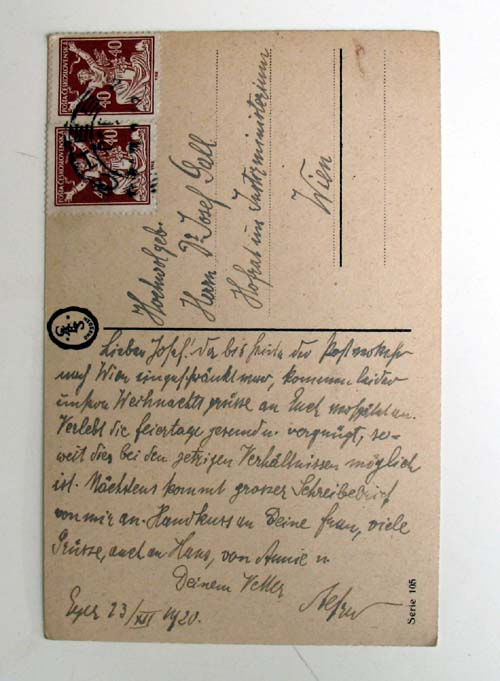 POŠTA ČESKOSLOVENSKÁ
40
40
POŠTA ČESKOSLOVENSKÁ
40
Hochwolgeb.
Herrn Dr Josef Gall
Hofrat im Justizministerium
Wien
Lieber Josef! Da bis heute der Postverkehr
nach Wien eingeschränkt war, kommen leider
unsere Weihnachtsgrüsse an Euch verspätet an.
Verlebt die feiertage gesund u. vergnügt, so-
weit dies bei den jetzigen Verhältnissen möglich
ist. Nächstens kommt grosser Schreibebrief
von mir an. Handkuss an Deine frau, viele
Grüsse, auch an Hans, von Annie u.
Deinem Vetter
Eger 23/XII 1920.
Serie 105